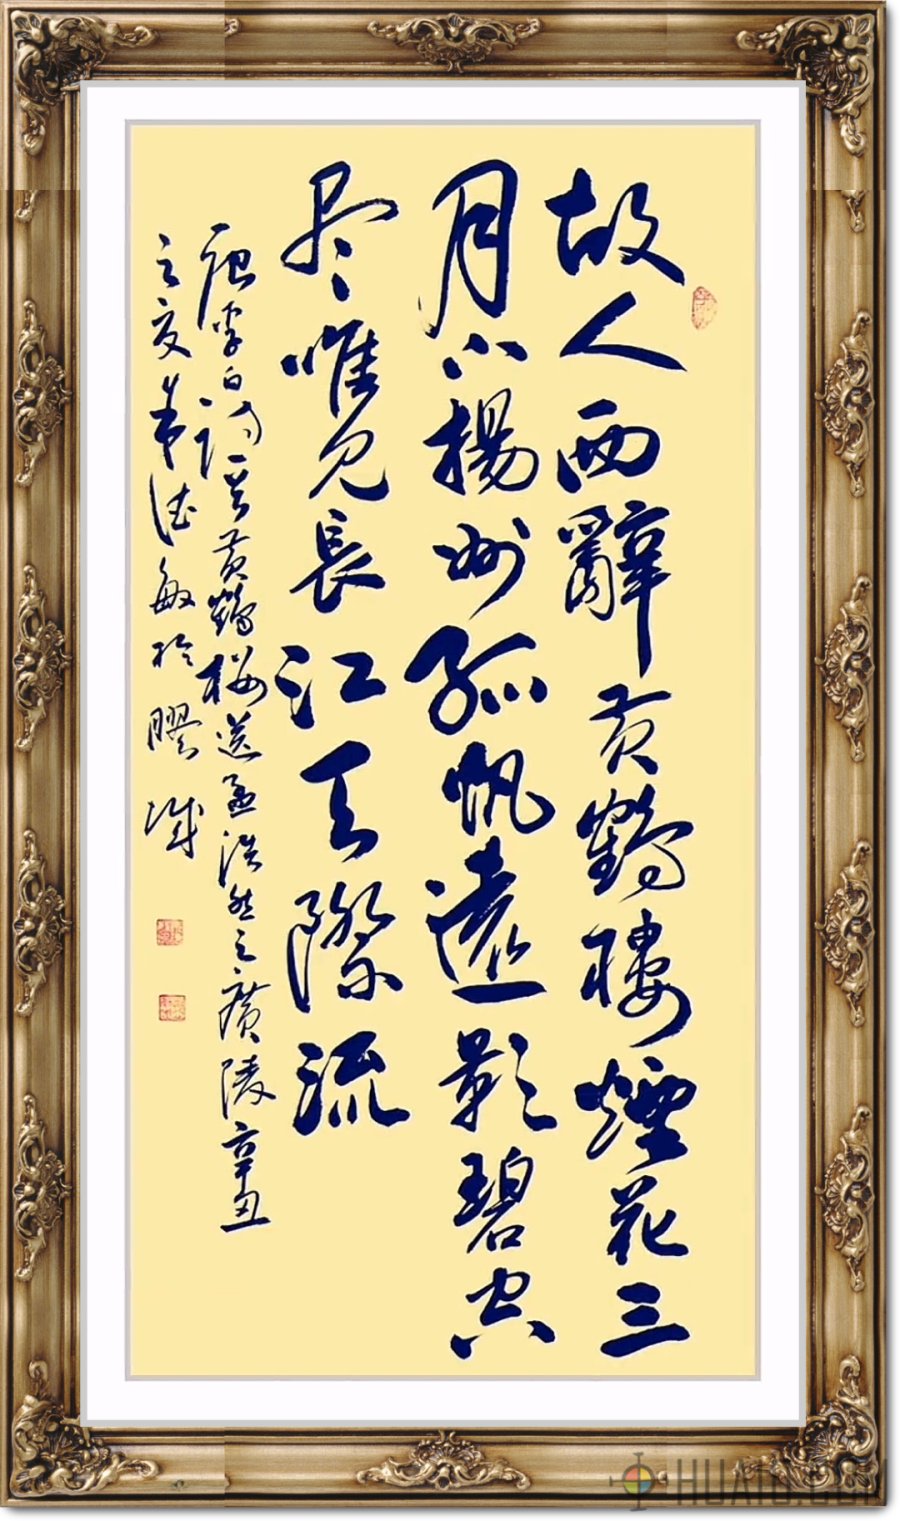 故人西辭黄鶴樓煙花三
月下揚州孤帆遠影碧空
尽唯见長江天際流
唐李白詩黄鶴樓送孟浩然之廣陵辛丑
之夏德敏於膠城